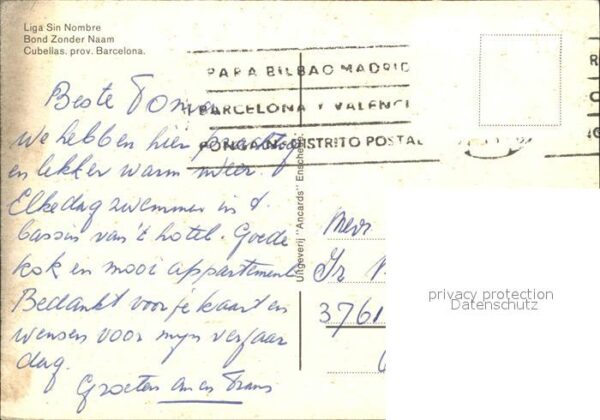 Liga Sin Nombre
Bond Zonder Naam
Cubellas. prov. Barcelona.
PARA BILBAO MADRID
BARCELONA Y VALENCI
PONGAN DISTRITO POSTAL
R
Beste
We hebben hier prachtig
en lekker warm weer.
Elkedag zwemmen in 't
bassin van 't hotel. Goede
kok en mooi appartement.
Bedankt voor je kaart en
wensen voor mijn verjaar
dag.
Groeten an en Frans
Uitgeverij "Ancards" Enschede.
Mevr
Ir
3761
privacy protection
Datenschutz